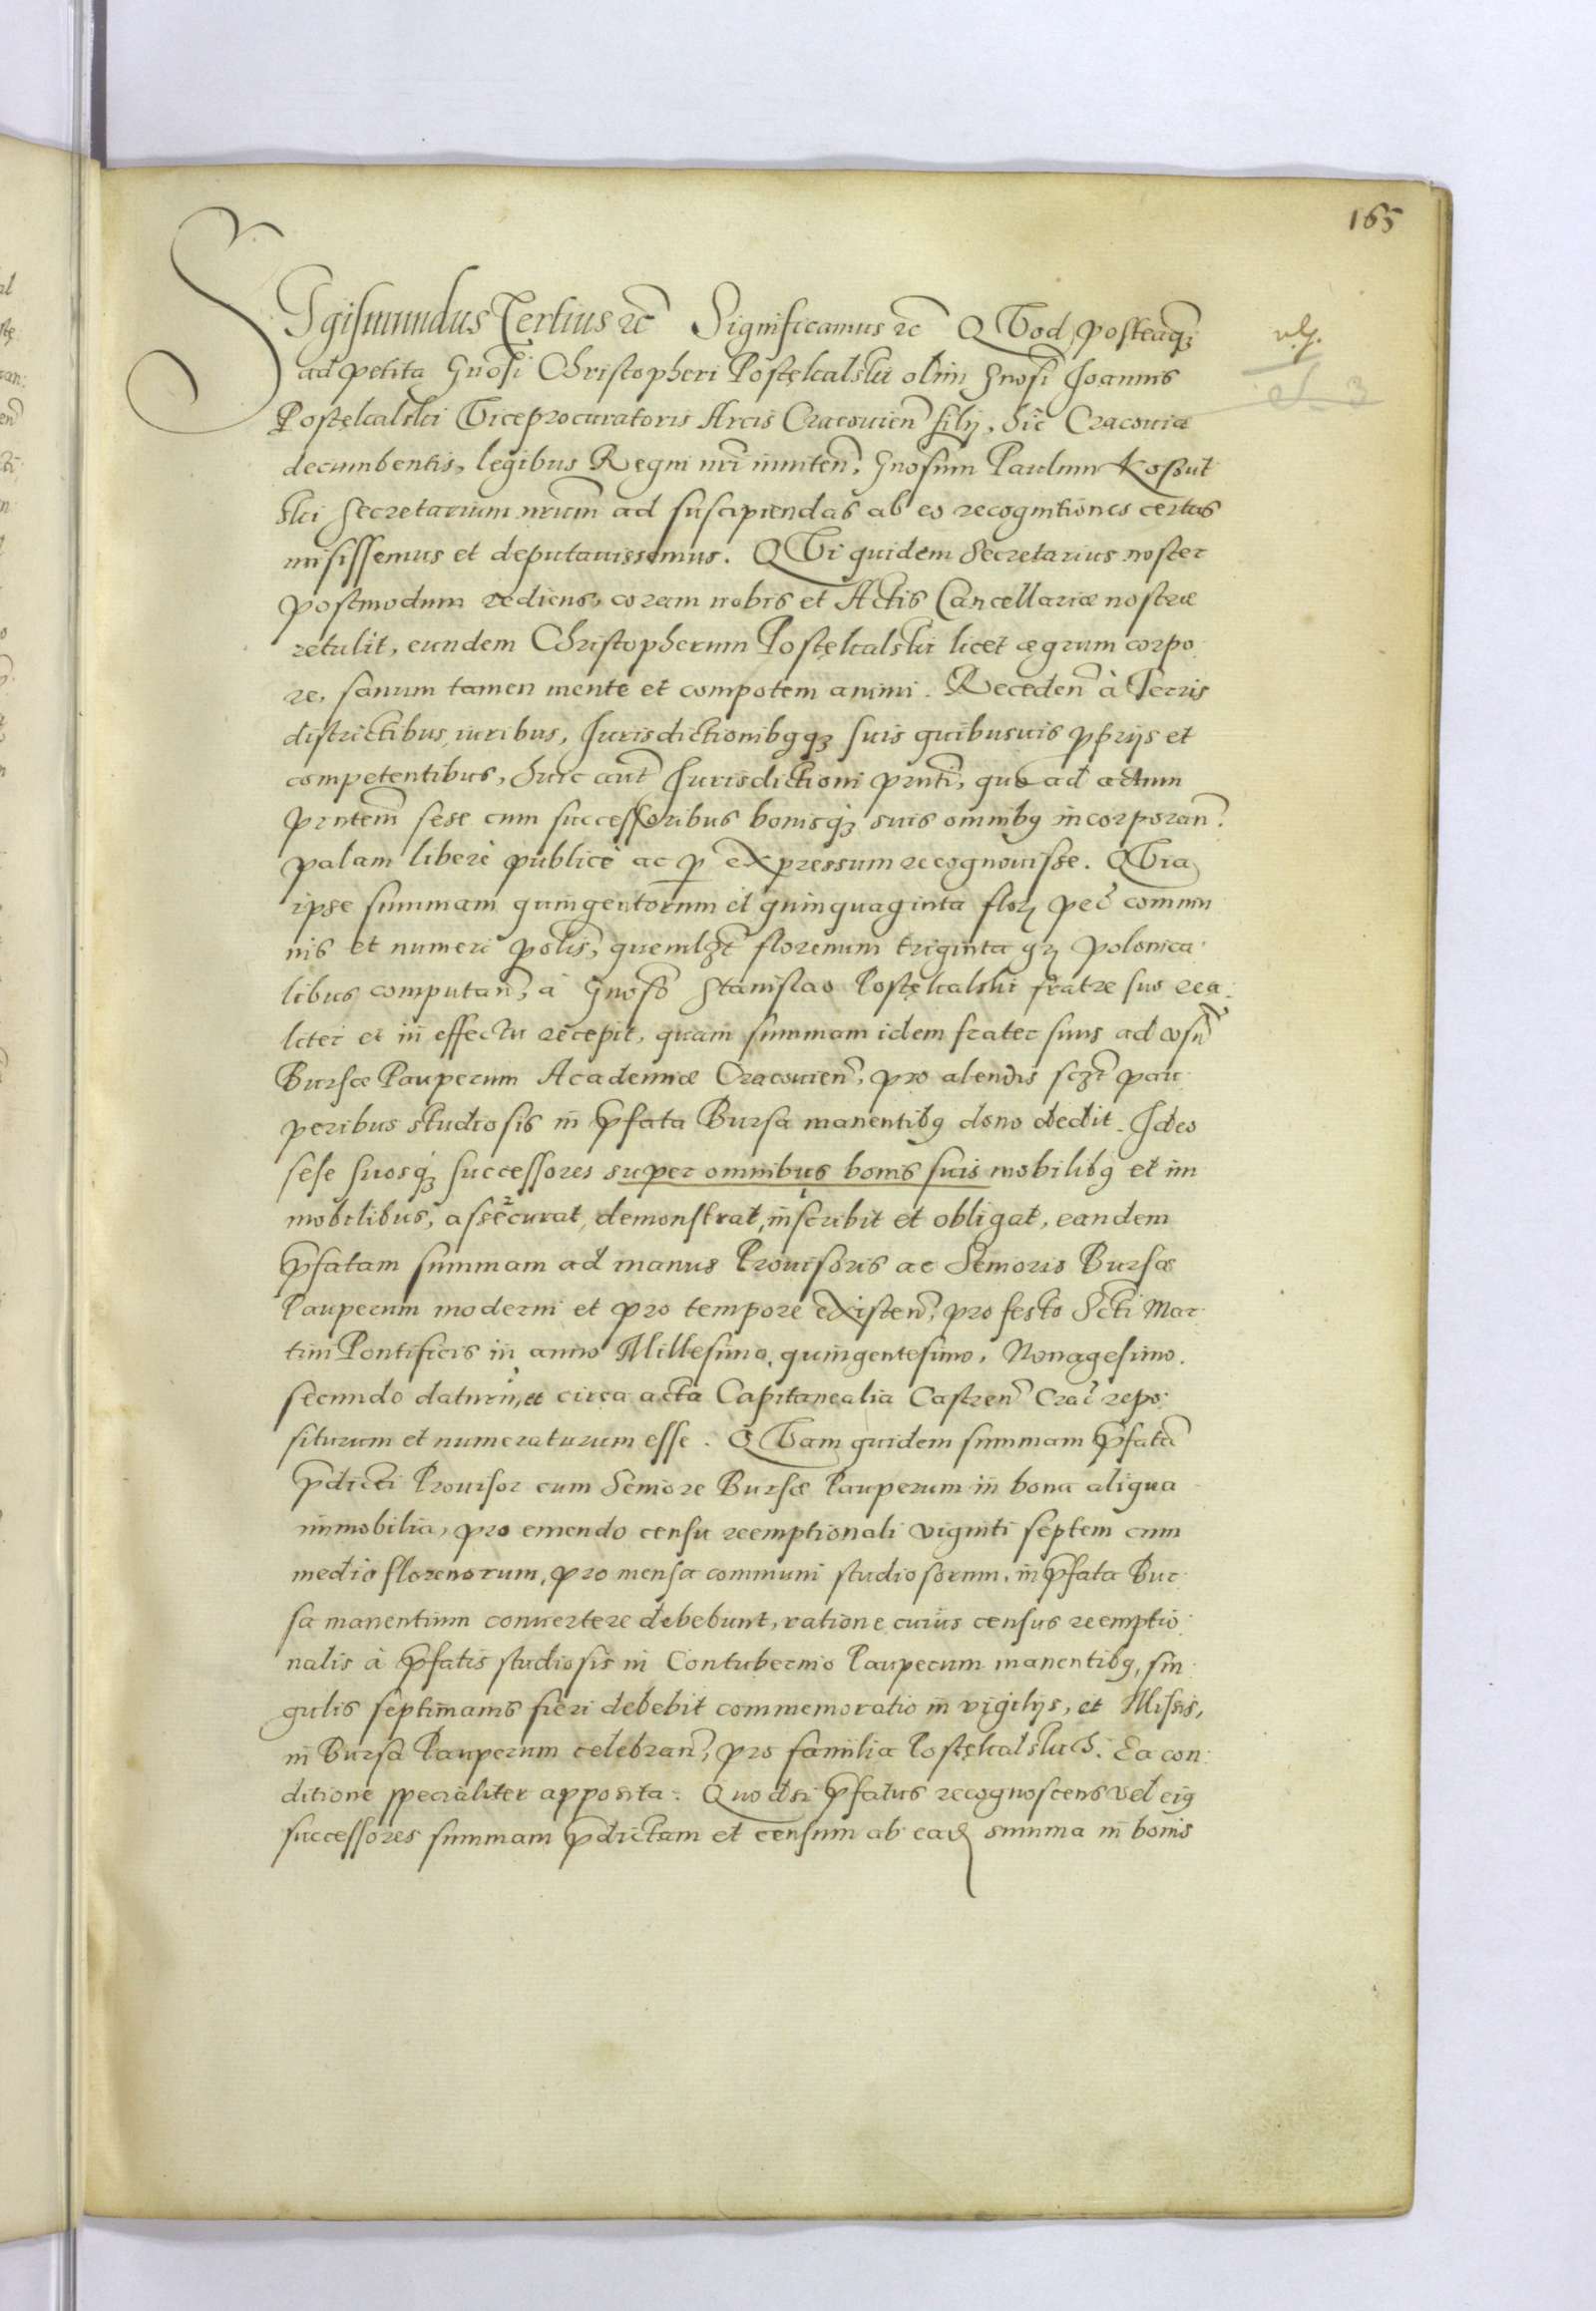 165
SIgismundus Tertius etc̃ Significamus etc̃ QVod posteaq̃
ad petita Gnosi Christopheri Postękalski olim Gnosi Joannis
Postękalski Viceprocuratoris Arcis Cracouień filij, hic Cracoviæ
decumbentis, legibus Regni nri inniteñ, Gnosum Paulum Kossut
ski Secretarium nrum̃ ad suscipiendas ab eo recognitiones certas
misissemus et deputauissemus. QVi quidem Secretarius noster
postmodum rediens, coram nobis et Actis Cancellariæ nostræ
retulit, eundem Christopherum Postękalski licet ægrum corpo
re, sanum tamen mente et compotem animi. Recedeñ à Terris
districtibus iuribus, Jurisdictionibq́ꝫ suis quibusuis ꝓprijs et
competentibus, huic aut̃ Jurisdictioni prnti, quo ad actum
prntem̃ sese cum successoribus bonisq́ꝫ suis omnibꝰ incorporañ.
palam liberè publicè ac ꝑ expressum recognouisse. QVia
ipse summam quingentorum et quinquaginta floꝝ pec̃ commu
nis et numeri polis̃, quemlꝫt florenum triginta gꝝ polonica
libus computañ, à Gnoso Stanislao Postękalski fratre suo rea
liter et in effectu recepit, quam summam idem frater suus ad cosũ
Bursæ Pauperum Academiæ Cracouień, pro alendis scꝫt pau
peribus studiosis in p̃fata Bursa manentibꝰ dono dedit. Ideo
sese suosq́ꝫ successores super omnibus bonis suis mobilibꝰ et im
mobilibus, assecurat, demonstrat, inscribit et obligat, eandem
p̃fatam summam ad manus Prouisoris ac Senioris Bursæ
Pauperum moderni et pro tempore existeñ, pro festo Scti Mar
tini Pontificis in anno Millesimo, quingentesimo, Nonagesimo.
secundo daturũ, et circa acta Capitanealia Castreñ Crac̃ repo
siturum et numeraturum esse. QVam quidem summam p̃fatã
p̃dicti Prouisor cum Seniore Bursæ Pauperum in bona aliqua
immobilia, pro emendo censu reemptionali viginti septem cum
medio florenorum, pro mensa communi studiosorum, in p̃fata Bur
sa manentium conuertere debebunt, ratione cuius census reemptio
nalis à p̃fatis studiosis in Contubernio Pauperum manentibꝰ, sin
gulis septimanis fieri debebit commemoratio in vigilijs, et Missis,
in Bursa Pauperum celebrañ, pro familia Postękalskich. Ea con
ditione specialiter apposita. Quodsi p̃fatus recognoscens vel eiꝰ
successores summam p̃dictam et censum ab eađ summa in bonis